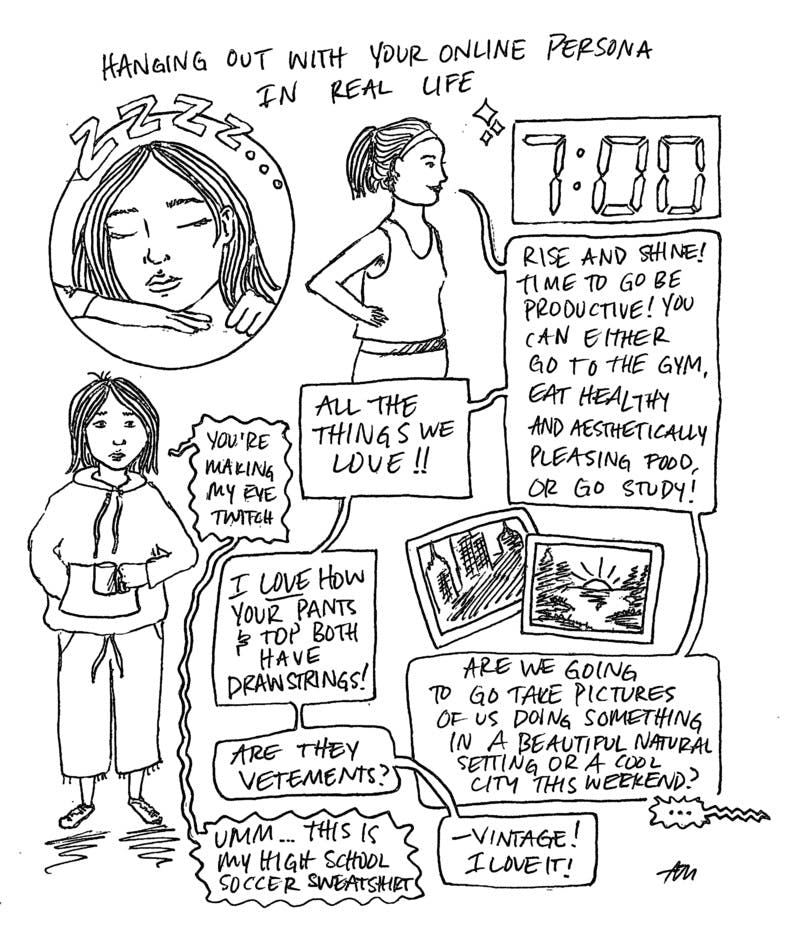 HANGING OUT WITH YOUR ONLINE PERSONA
IN REAL LIFE
ZZZZ...
7:00
RISE AND SHINE!
TIME TO GO BE
PRODUCTIVE! YOU
CAN EITHER
GO TO THE GYM,
EAT HEALTHY
AND AESTHETICALLY
PLEASING FOOD,
OR GO STUDY!
ALL THE
THINGS WE
LOVE!!
YOU'RE
MAKING
MY EYE
TWITCH
I LOVE HOW
YOUR PANTS
& TOP BOTH
HAVE
DRAWSTRINGS!
ARE WE GOING
TO GO TAKE PICTURES
OF US DOING SOMETHING
IN A BEAUTIFUL NATURAL
SETTING OR A COOL
CITY THIS WEEKEND?
ARE THEY
VETEMENTS?
...
UMM... THIS IS
MY HIGH SCHOOL
SOCCER SWEATSHIRT
—VINTAGE!
I LOVE IT!